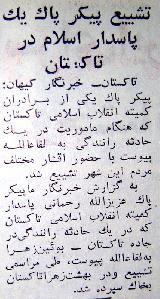 تشییع پیکر پاك یك
پاسدار اسلام در
تاکستان
تاکستان- خبرنگار کیهان:
پیکر پاك یکی از برادران
کمیته انقلاب اسلامی تاکستان
که هنگام ماموریت در یك
حادثه رانندگی به لقاءالله
پیوست با حضور اقشار مختلف
مردم این شهر تشییع شد.
به گزارش خبرنگار ما پیکر
پاك عزیزالله رحمانی پاسدار
کمیته انقلاب اسلامی تاکستان
که در یك حادثه رانندگی در
جاده تاکستان - بوئین‌زهرا
به‌لقاءالله پیوست، طی مراسمی
تشییع ودر بهشت‌زهرا تاکستان
بخاك سپرده شد.